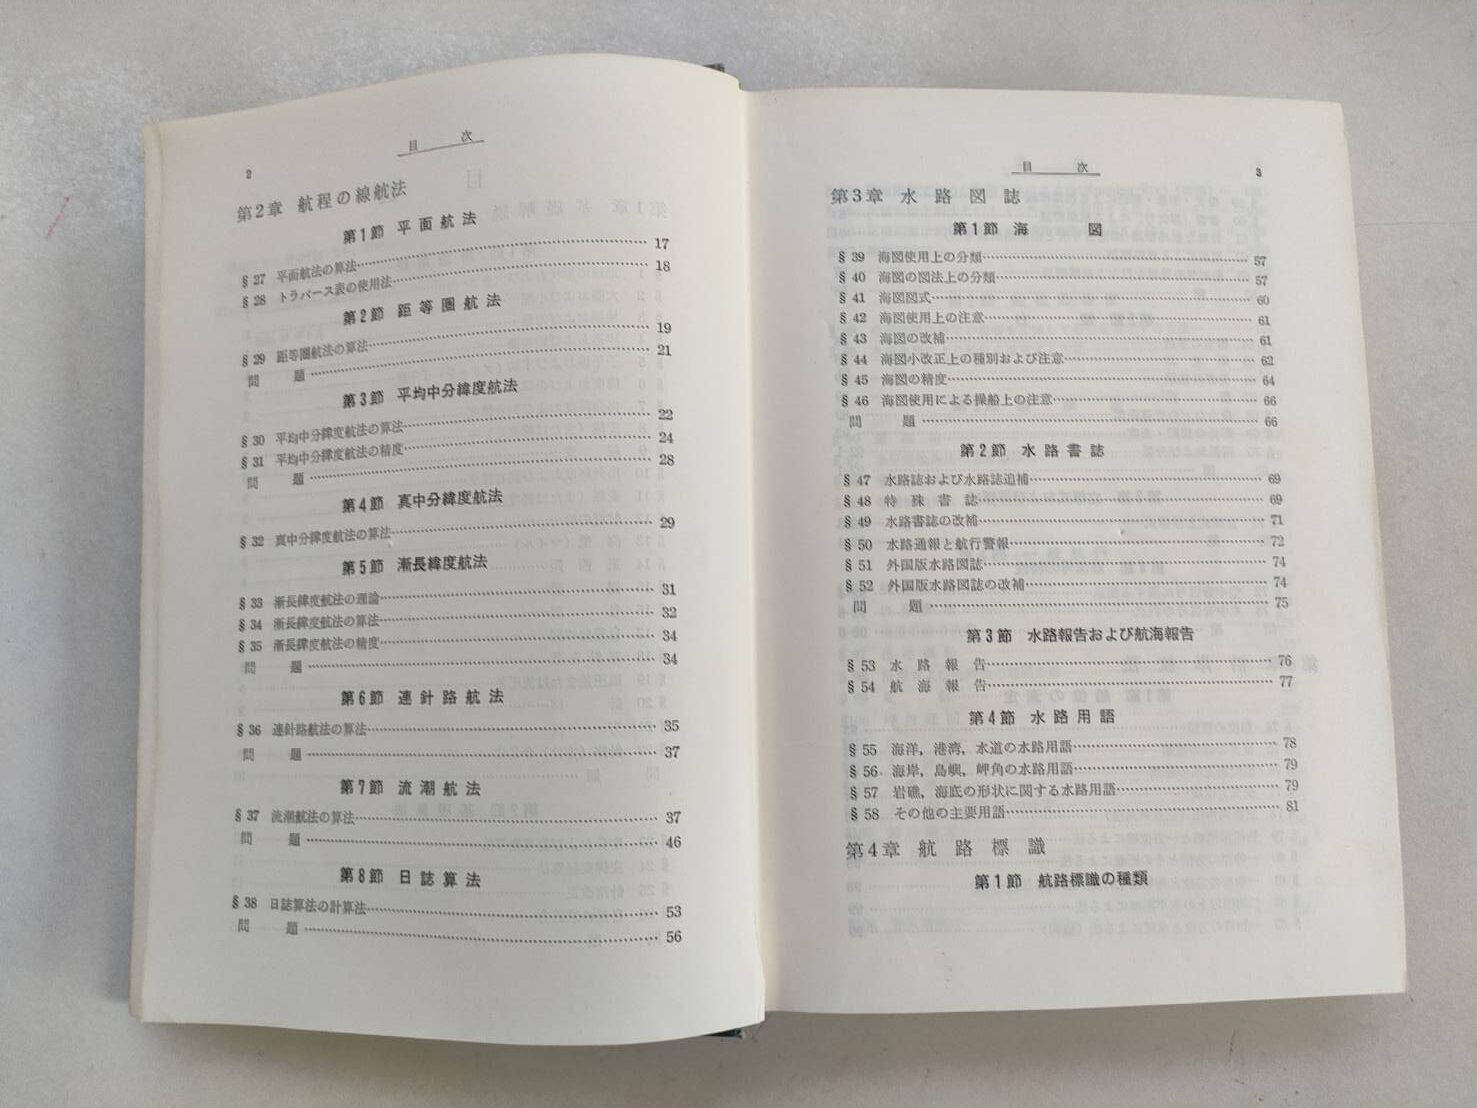 目 次
2
第2章 航程の線航法
第1節 平面航法
§27 平面航法の算法……17
§28 トラバース表の使用法……18
第2節 距等圏航法
§29 距等圏航法の算法……19
問 題……21
第3節 平均中分緯度航法
§30 平均中分緯度航法の算法……22
§31 平均中分緯度航法の精度……24
問 題……28
第4節 真中分緯度航法
§32 真中分緯度航法の算法……29
第5節 漸長緯度航法
§33 漸長緯度航法の理論……31
§34 漸長緯度航法の算法……32
§35 漸長緯度航法の精度……34
問 題……34
第6節 連針路航法
§36 連針路航法の算法……35
問 題……37
第7節 流潮航法
§37 流潮航法の算法……37
問 題……46
第8節 日誌算法
§38 日誌算法の計算法……53
問 題……56
目 次
3
第3章 水路図誌
第1節 海 図
§39 海図使用上の分類……57
§40 海図の図法上の分類……57
§41 海図図式……60
§42 海図使用上の注意……61
§43 海図の改補……61
§44 海図小改正上の種別および注意……62
§45 海図の精度……64
§46 海図使用による操船上の注意……66
問 題……66
第2節 水路書誌
§47 水路誌および水路誌追補……69
§48 特殊書誌……69
§49 水路書誌の改補……71
§50 水路通報と航行警報……72
§51 外国版水路図誌……74
§52 外国版水路図誌の改補……74
問 題……75
第3節 水路報告および航海報告
§53 水路報告……76
§54 航海報告……77
第4節 水路用語
§55 海洋，港湾，水道の水路用語……78
§56 海岸，島嶼，岬角の水路用語……79
§57 岩礁，海底の形状に関する水路用語……79
§58 その他の主要用語……81
第4章 航路標識
第1節 航路標識の種類